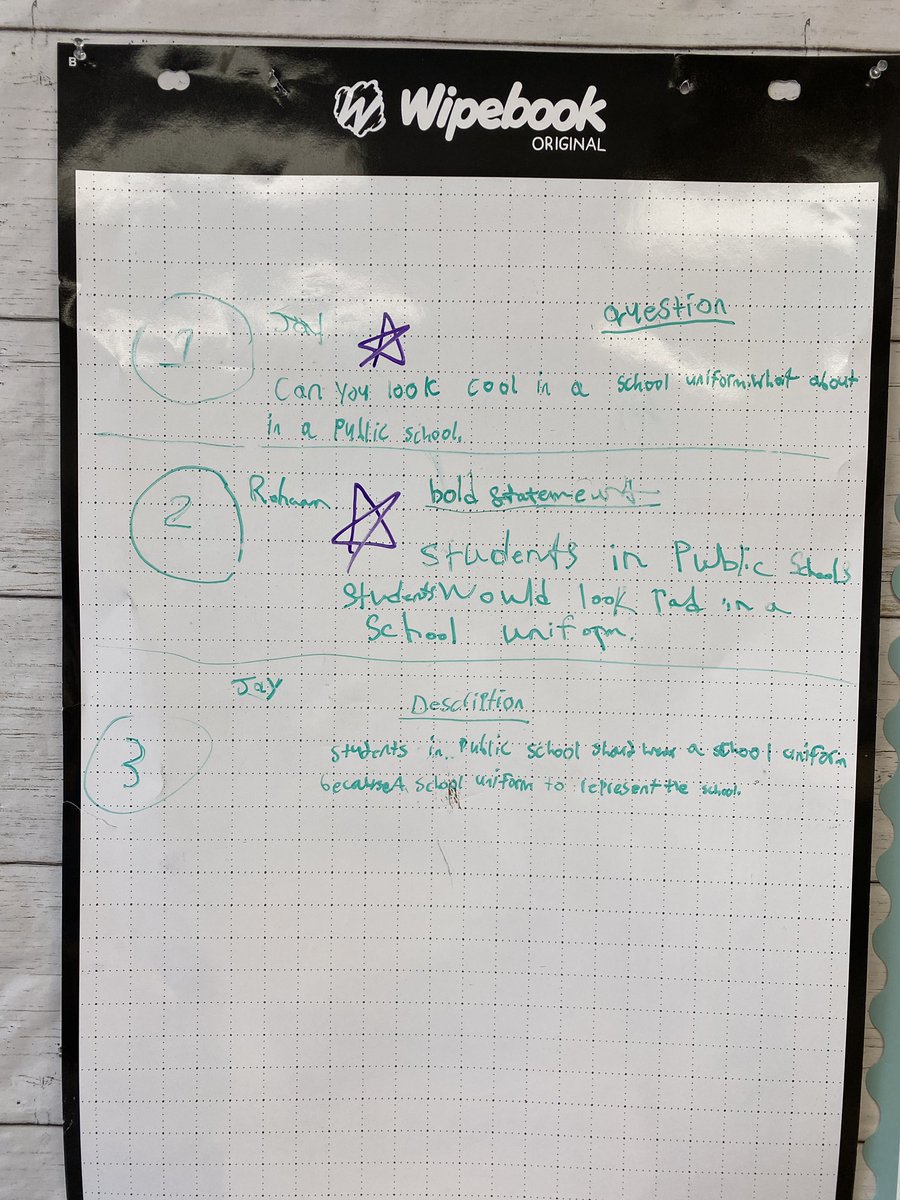 B
W Wipebook
ORIGINAL
1 Jay question
Can you look cool in a school uniform.What about
in a Public school.
2 Rohaan bold statement
Students in Public Schools
students Would look rad in a
School uniform.
Jay
3 Description
students in Public school shoud wear a school uniform
because A school uniform to represent the school.